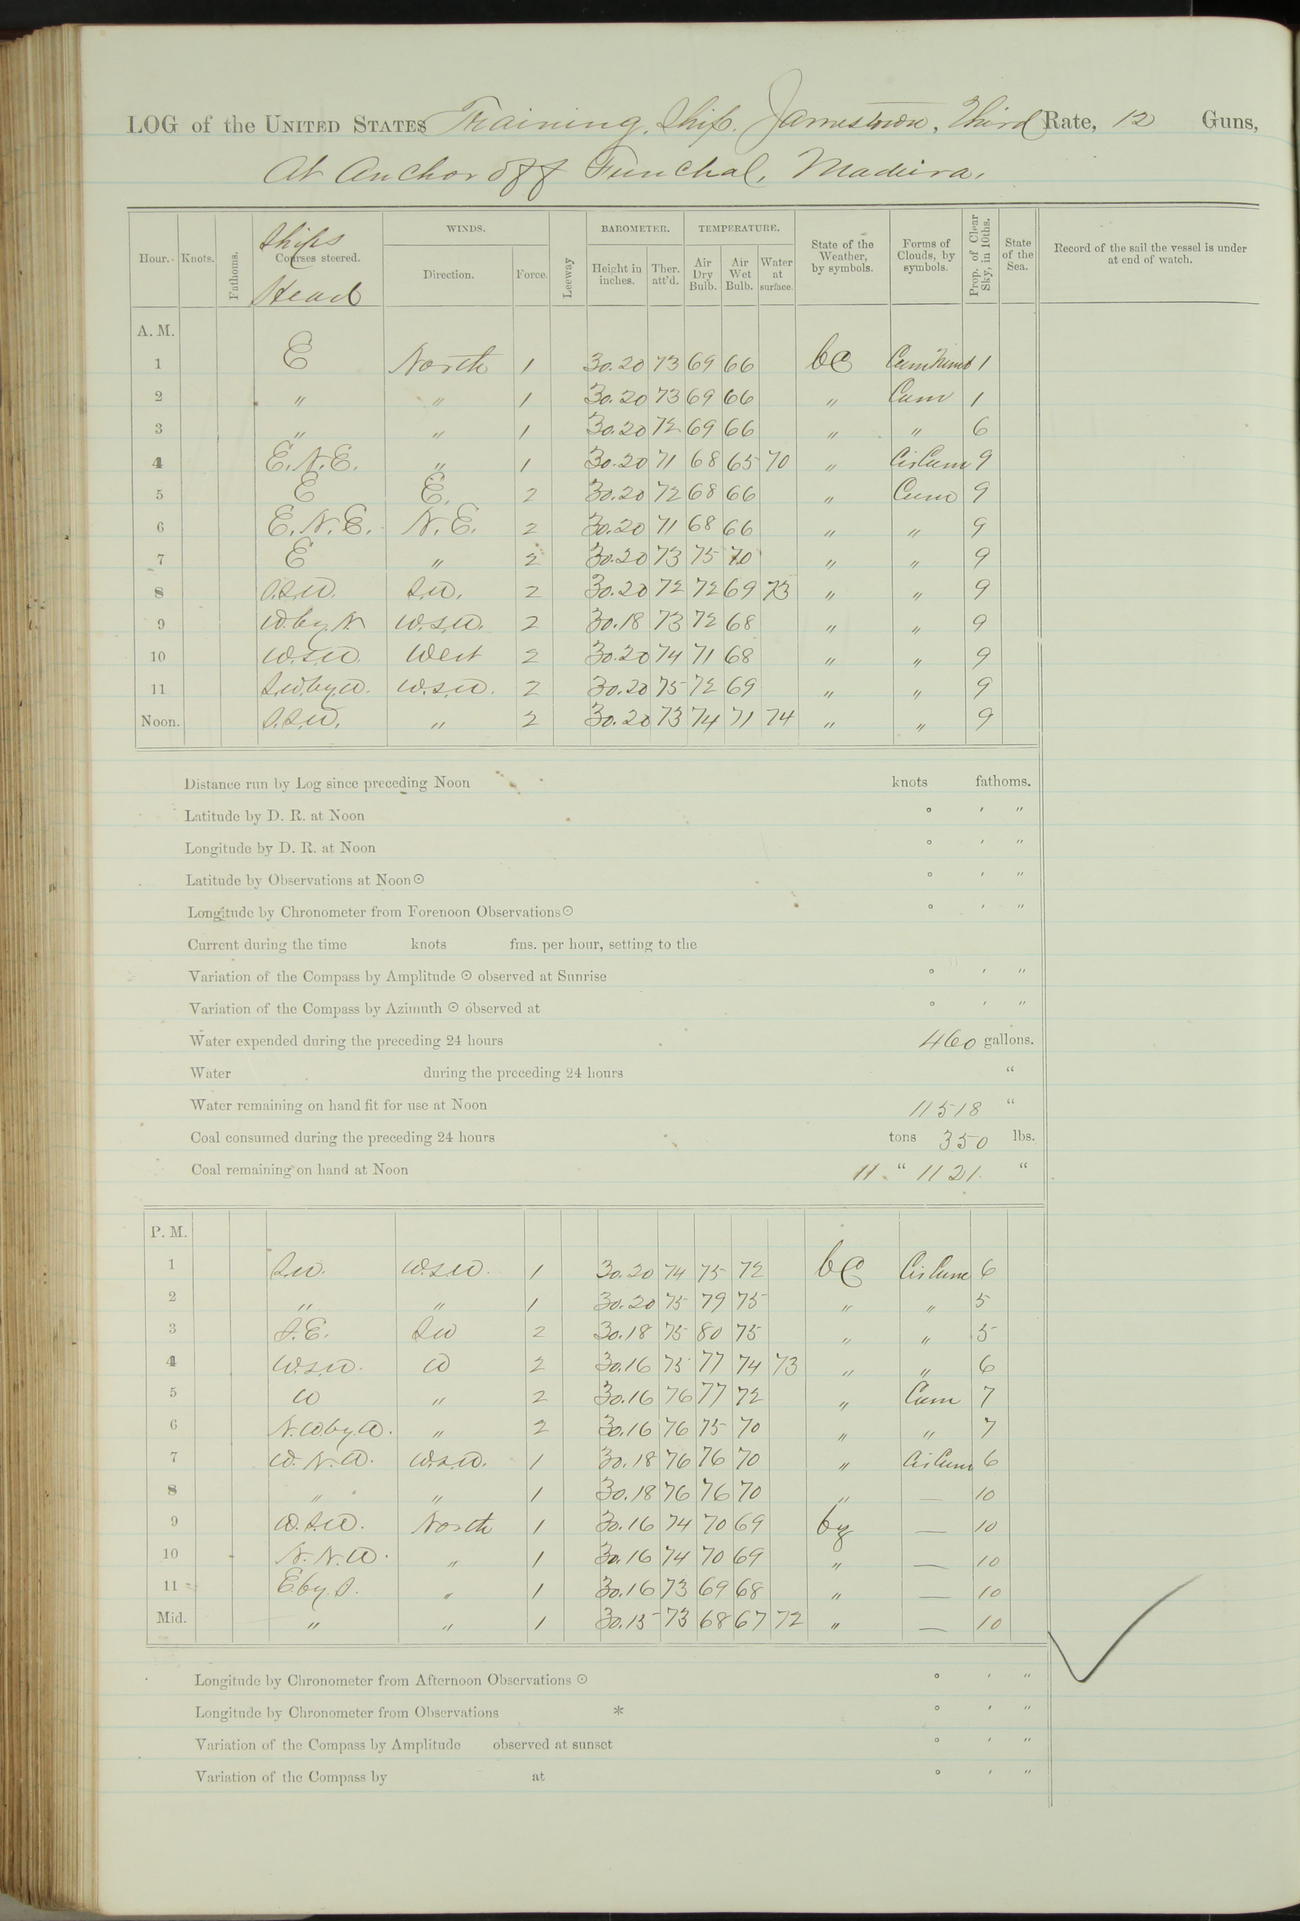 LOG of the UNITED STATES Training Ship Jamestown, Third Rate, 12 Guns,
At Anchor off Funchal, Madeira,
Hour. Knots. Fathoms. Ships Courses steered. Head WINDS. Direction. Force. Leeway BAROMETER. Height in inches. Ther. att'd. TEMPERATURE. Air Dry Bulb. Air Wet Bulb. Water at surface. State of the Weather, by symbols. Forms of Clouds, by symbols. Prop. of Clear Sky, in 10ths. State of the Sea. Record of the sail the vessel is under at end of watch.
A. M.
1 E North 1 30.20 73 69 66 bc Cum Nimb 1
2 " " 1 30.20 73 69 66 " Cum 1
3 " " 1 30.20 72 69 66 " " 6
4 E.N.E. " 1 30.20 71 68 65 70 " Cir Cum 9
5 E E. 2 30.20 72 68 66 " Cum 9
6 E.N.E. N.E. 2 30.20 71 68 66 " " 9
7 E " 2 30.20 73 75 70 " " 9
8 S.S.W. S.W. 2 30.20 72 72 69 73 " " 9
9 W.by.N W.S.W. 2 30.18 73 72 68 " " 9
10 W.S.W. West 2 30.20 74 71 68 " " 9
11 S.W.by W. W.S.W. 2 30.20 75 72 69 " " 9
Noon. S.S.W. " 2 30.20 73 74 71 74 " " 9
Distance run by Log since preceding Noon knots fathoms.
Latitude by D. R. at Noon ° ′ ″
Longitude by D. R. at Noon ° ′ ″
Latitude by Observations at Noon ☉ ° ′ ″
Longitude by Chronometer from Forenoon Observations ☉ ° ′ ″
Current during the time knots fms. per hour, setting to the
Variation of the Compass by Amplitude ☉ observed at Sunrise ° ′ ″
Variation of the Compass by Azimuth ☉ observed at ° ′ ″
Water expended during the preceding 24 hours 460 gallons.
Water during the preceding 24 hours "
Water remaining on hand fit for use at Noon 11518 "
Coal consumed during the preceding 24 hours tons 350 lbs.
Coal remaining on hand at Noon 11. " 1121. "
P. M.
1 S.W. W.S.W. 1 30.20 74 75 72 bc Cir Cum 6
2 " " 1 30.20 75 79 75 " " 5
3 S.E. SW 2 30.18 75 80 75 " " 5
4 W.S.W. W 2 30.16 75 77 74 73 " " 6
5 W " 2 30.16 76 77 72 " Cum 7
6 N.W by.W. " 2 30.16 76 75 70 " " 7
7 W.N.W. W.S.W. 1 30.18 76 76 70 " Cir Cum 6
8 " " 1 30.18 76 76 70 " — 10
9 W.S.W. North 1 30.16 74 70 69 — 10
10 N.N.W. " 1 30.16 74 70 69 " — 10
11 E by. S. " 1 30.16 73 69 68 " — 10
Mid. " " 1 30.15 73 68 67 72 " — 10
Longitude by Chronometer from Afternoon Observations ☉ ° ′ ″
Longitude by Chronometer from Observations * ° ′ ″
Variation of the Compass by Amplitude observed at sunset ° ′ ″
Variation of the Compass by at ° ′ ″